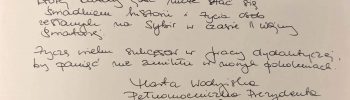 który może stać się
świadkiem historii i życia osób
zesłanych na Sybir w czasie II Wojny
Światowej.
Życzę wielu sukcesów w pracy dydaktycznej,
by pamięć nie znikła w nowych pokoleniach
Marta
Pełnomocniczka Prezydenta